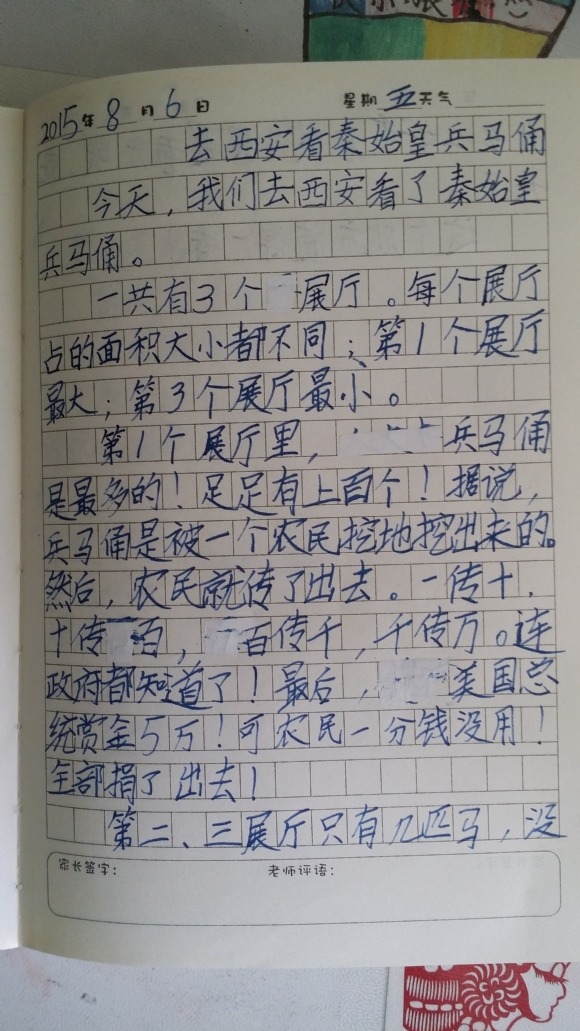 2015年8月6日 星期五天气
去西安看秦始皇兵马俑
今天，我们去西安看了秦始皇
兵马俑。
一共有3个展厅。每个展厅
占的面积大小都不同；第1个展厅
最大；第3个展厅最小。
第1个展厅里，兵马俑
是最多的！足足有上百个！据说，
兵马俑是被一个农民挖地挖出来的。
然后，农民就传了出去。一传十，
十传百，一百传千，千传万。连
政府都知道了！最后，美国总
统赏金5万！可农民一分钱没用！
全部捐了出去！
第二、三展厅只有几匹马，没
家长签字： 老师评语：